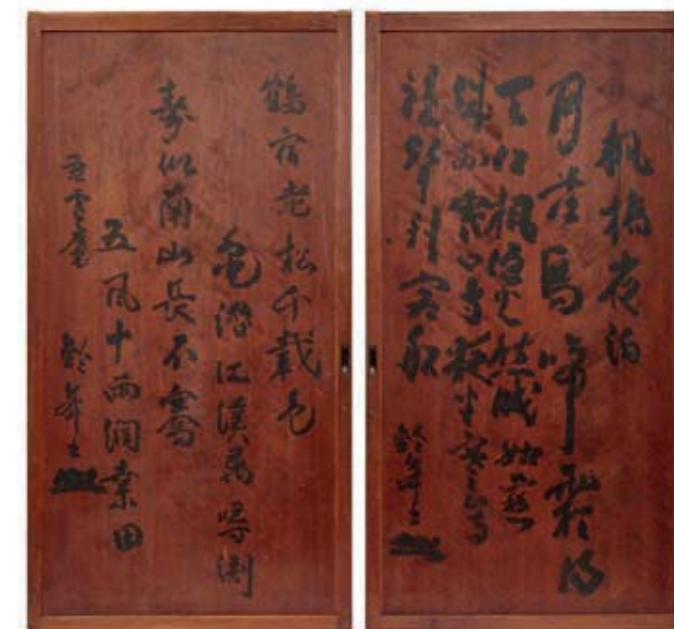 楓橋夜泊
月落烏啼霜満
天江楓漁火愁眠姑蘇
城外寒山寺夜半
鐘聲到客船
鶴宿老松千載色
亀潜江漢萬尋淵
寿似南山長不騫
五風十雨潤桑田